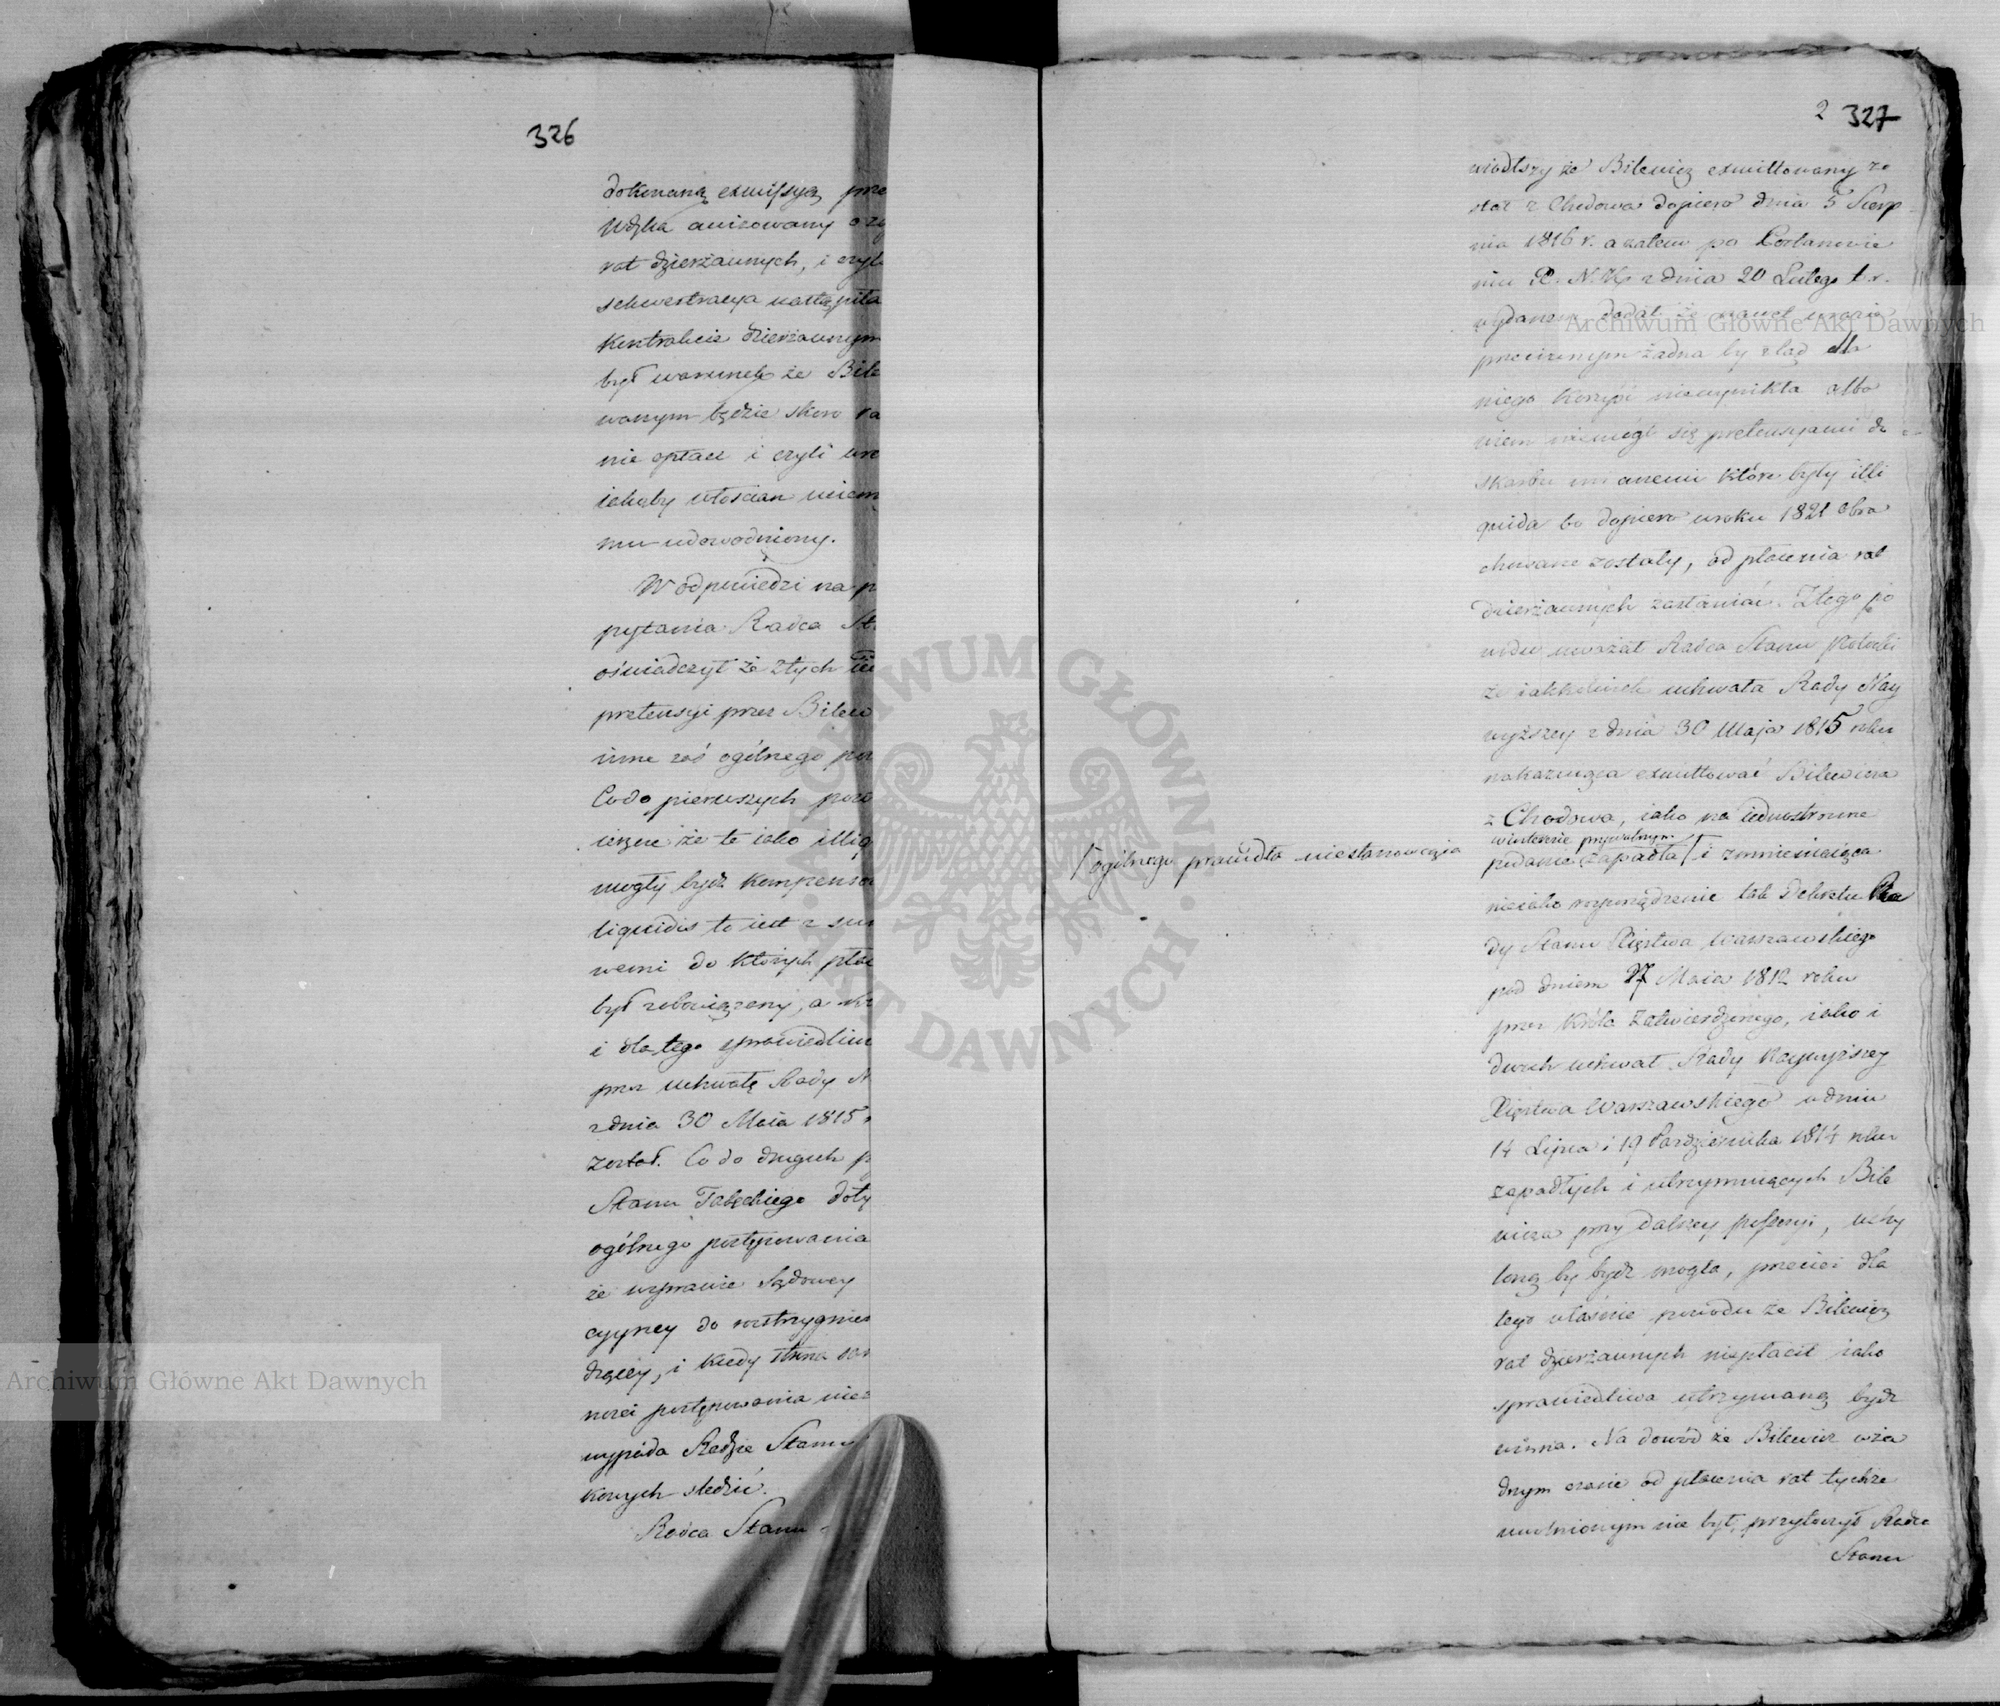 326
dokonaną exmissyą prze
Wdztwa awizowany o za
rat dzierżawnych, i czyli
sekwestracya nastąpiła
kontrakcie dzierżawnym
był warunek że Bile
wanym będzie skoro ra
nie opłaci i czyli
iakoby włościan
mu udowodniony.
W odpowiedzi na p
pytania Radca St.
oświadczył że z tych
pretensyi przez Bilew
inne zaś ogólnego po
Co do pierwszych
że te iako illiq
mogły bydź kompenso
liquidis to iest z sum
wemi do których płac
był zobowiązany, a
i dla tego sprawiedliw
przez uchwałę Rady N
z dnia 30 Maia 1815 r
został. Co do drugich p
Stanu doty
ogólnego postępowania
że w sprawie Sądowey
cyyney do rozstrzygnie
i kiedy strona
postępowania nie
wypada Radzie Stanu
kowych śledzić.
Radca Stanu
2 327
wiódłszy że Bilewicz exmittowany zo
stał z Chodowa dopiero dnia 5 Sierp
nia 1816 r. a zatem po Postanowie
niu X. N. Kr z dnia 20 Lutego t. r.
wydanem dodał że nawet w razie
przeciwnym żadna by ztąd dla
niego korzyść niewynikła albo
wiem niemógł się pretensyami do
skarbu mianemi które były illi
quida bo dopiero w roku 1821 obra
chowane zostały, od płacenia rat
dzierżawnych zasłaniać. Z tego po
wodu uważał Radca Stanu
że iakkolwiek uchwała Rady Nay
wyższey z dnia 30 Maja 1815 roku
nakazuiąca exmittować Bilewicza
z Chodowa, iako na iednostronne
w interesie prywatnym
podanie zapadła ⌈ i zmnieniaiąca
⌈ ogólnego prawidła niestanowiąca
nieiako rozporządzenie tak Dekretu Ra
dy Stanu Xięstwa Warszawskiego
pod dniem 27 Maia 1812 roku
przez Króla zatwierdzonego, iako i
dwóch uchwał Rady Naywyższey
Xięstwa Warszawskiego w dniu
14 Lipca i 19 Października 1814 roku
zapadłych i utrzymuiących Bile
wicza przy dalszey possessyi, uchy
loną by bydź mogła, przecież dla
tego właśnie powodu że Bilewicz
rat dzierżawnych niepłacił iako
sprawiedliwa utrzymaną bydź
winna. Na dowód że Bilewicz w ża
dnym czasie od płacenia rat tychże
uwolnionym nie był, przytoczył Radca
Stanu
Archiwum Główne Akt Dawnych
Archiwum Główne Akt Dawnych
ARCHIWUM GŁÓWNE · AKT DAWNYCH ·